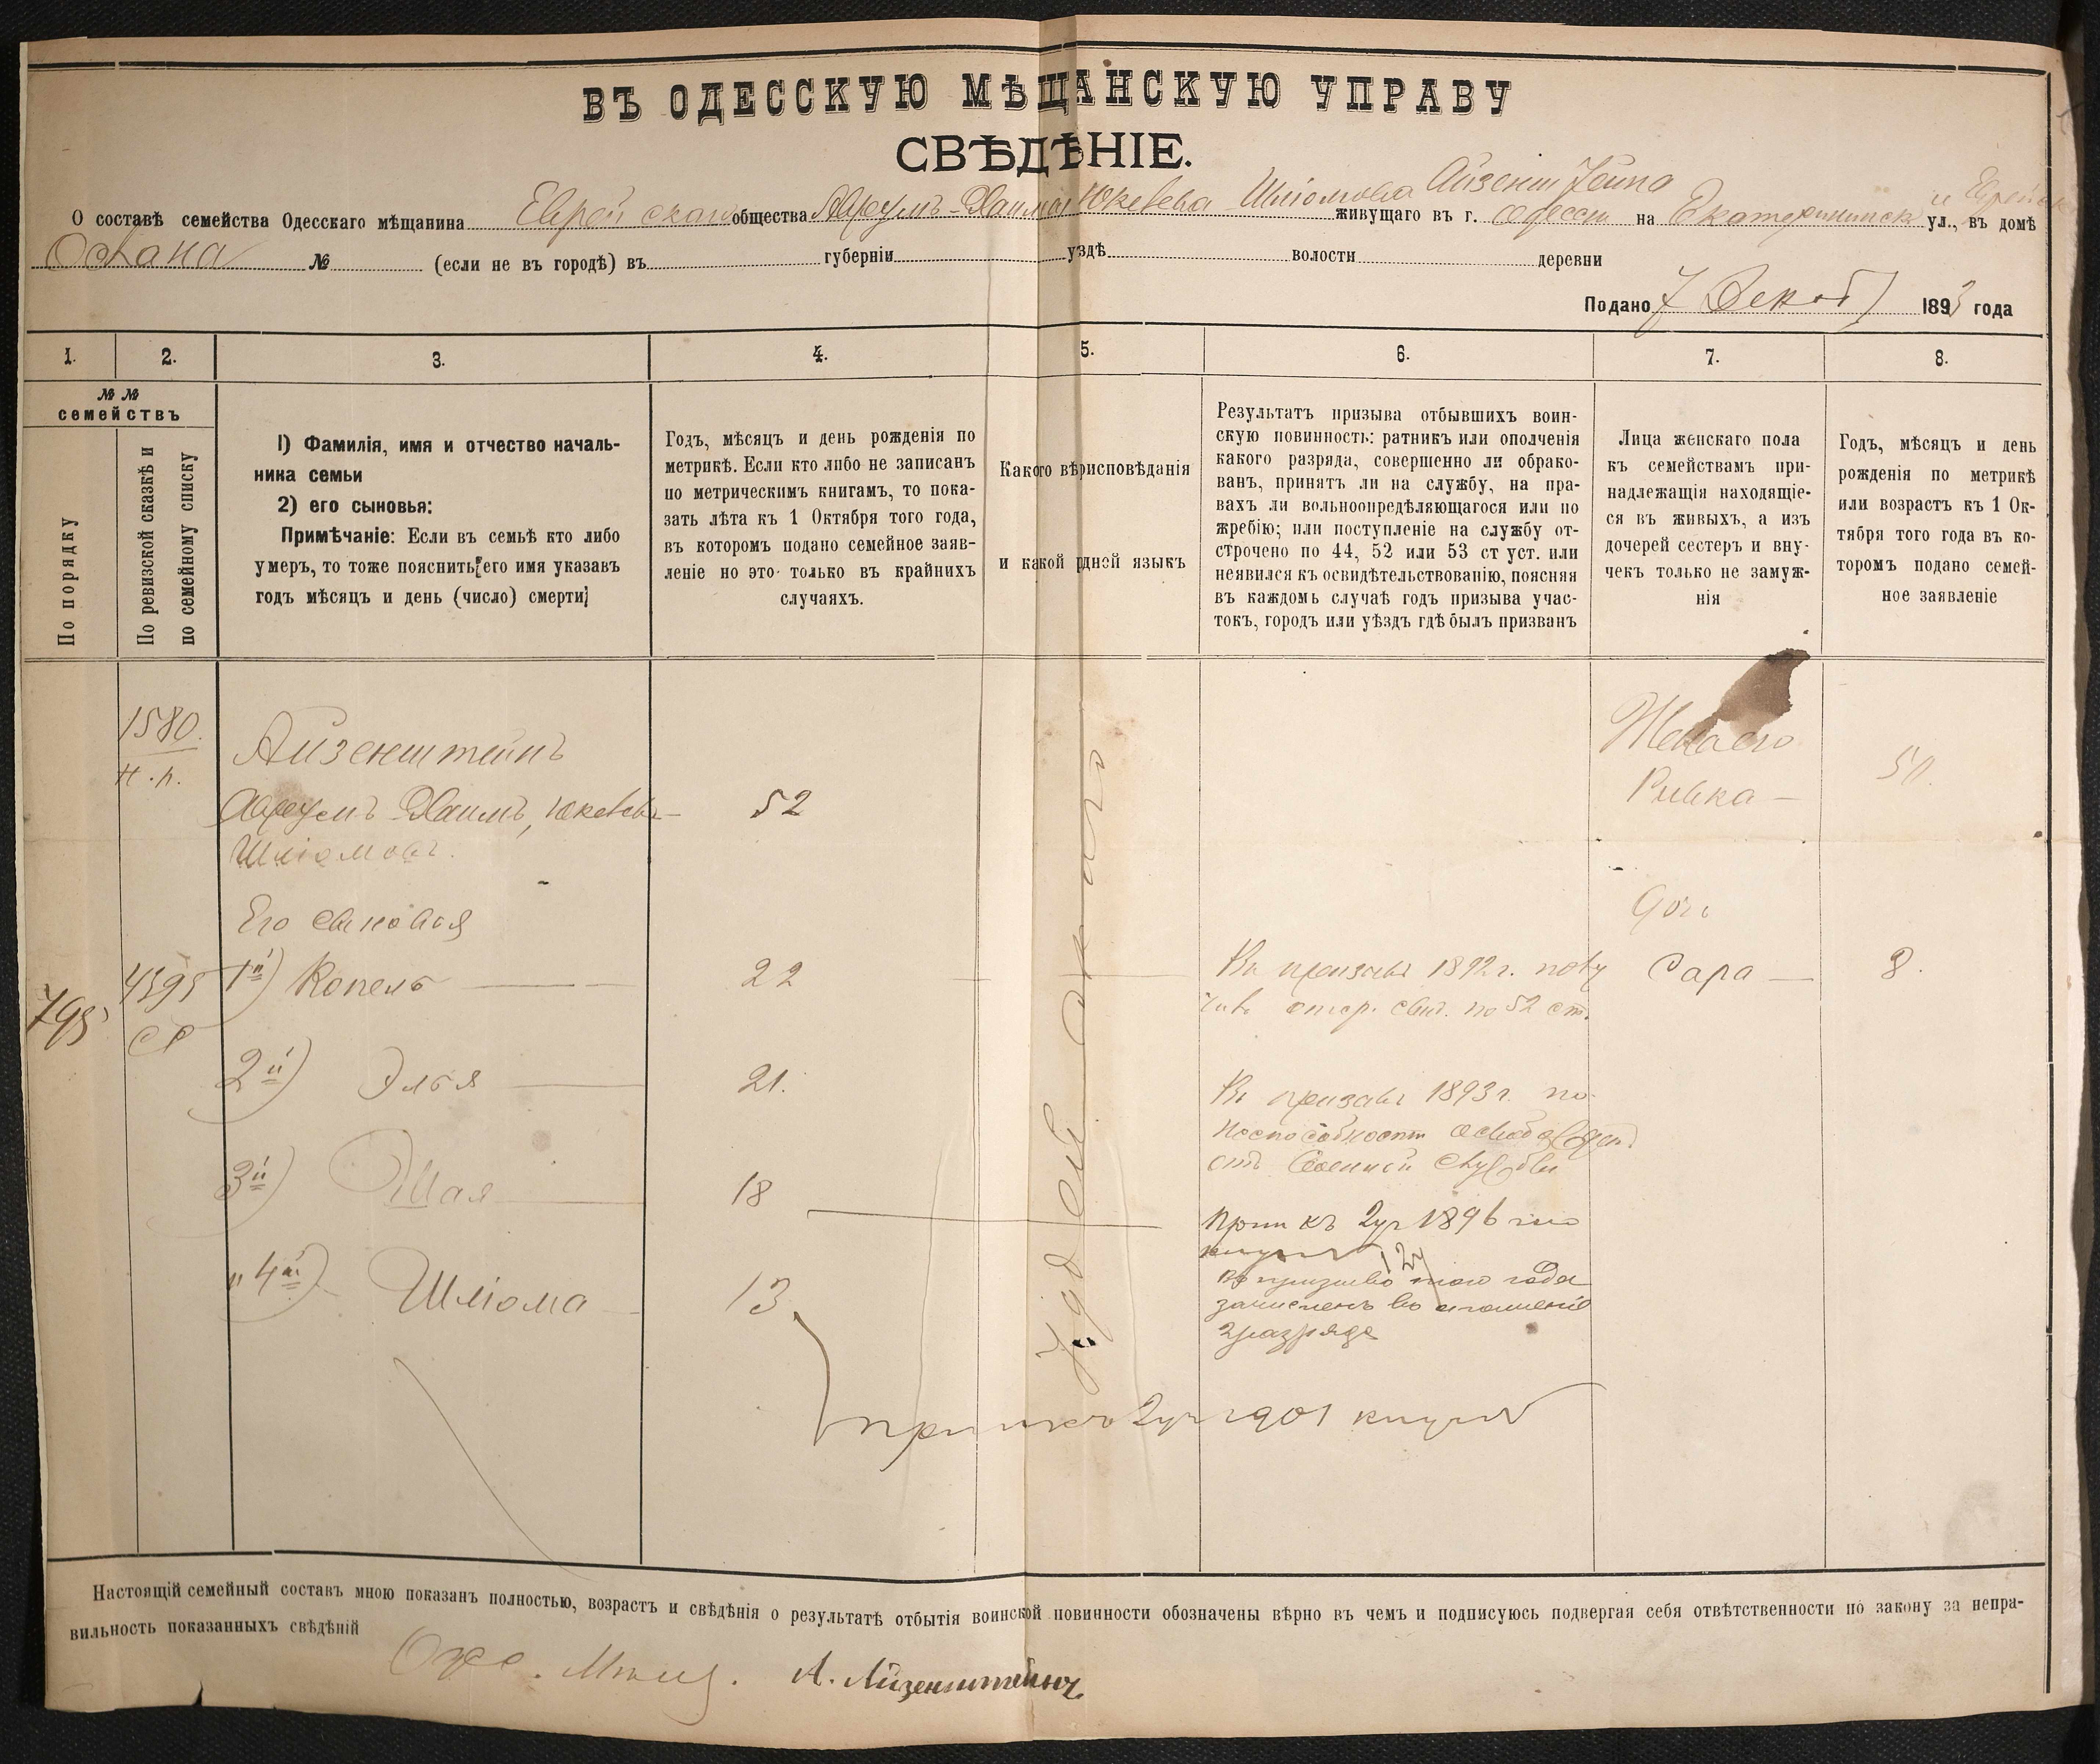 ВЪ ОДЕССКУЮ МѢЩАНСКУЮ УПРАВУ
СВѢДѢНІЕ.
О составѣ семейства Одесскаго мѣщанина Еврейскаго общества Аврумъ-Хаима Юкелева Шліомова Айзенштейна живущаго въ г. Одессѣ на Екатерининск и Еврейск ул., въ домѣ
№ (если не въ городѣ) въ губерніи уздѣ волости деревни
Подано 7 Декаб 1893 года
1. 2. 3. 4. 5. 6. 7. 8.
№ №
семействъ
По порядку
По ревизской сказкѣ и
по семейному списку
1) Фамилія, имя и отчество началь-
ника семьи
2) его сыновья:
Примѣчаніе: Если въ семьѣ кто либо
умеръ, то тоже пояснить[его имя указавъ
годъ мѣсяцъ и день (число) смерти]
Годъ, мѣсяцъ и день рожденія по
метрикѣ. Если кто либо не записанъ
по метрическимъ книгамъ, то пока-
зать лѣта къ 1 Октября того года,
въ которомъ подано семейное заяв-
леніе но это только въ крайнихъ
случаяхъ.
Какого вѣрисповѣданія
и какой рдной языкъ
Результатъ призыва отбывшихъ воин-
скую повинность: ратникъ или ополченія
какого разряда, совершенно ли обрако-
ванъ, принятъ ли на службу, на пра-
вахъ ли вольноопредѣляющагося или по
жребію; или поступленіе на службу от-
строчено по 44, 52 или 53 ст уст. или
неявился къ освидѣтельствованію, поясняя
въ каждомь случаѣ годъ призыва учас-
токъ, городъ или уѣздъ гдѣ былъ призванъ
Лица женскаго пола
къ семействамъ при-
надлежащія находящіе-
ся въ живыхъ, а изъ
дочерей сестеръ и вну-
чекъ только не замуж-
нія
Годъ, мѣсяцъ и день
рожденія по метрикѣ
или возрастъ къ 1 Ок-
тября того года въ ко-
торомъ подано семей-
ное заявленіе
1580.
н.п.
Айзенштейнъ
Аврумъ Хаимъ, Юкелевъ —
Шліомовъ.
52
Жена его
Ривка —
50.
Его сыновья
795
4595
1й) Копель —
22
Въ призывѣ 1892 г. полу
чивъ отср. свид. по 52 ст.
Дочь
Сара —
8.
2й) Элья —
21.
Въ призывѣ 1893 г. по
неспособности освобожден
отъ военной службы
3й) Шая
18
1896
въ призывъ того года
зачисленъ въ ополченіе
2 разряда
и 4й) Шліома —
13.
1901
Настоящій семейный составъ мною показанъ полностью, возрастъ и свѣдѣнія о результатѣ отбытія воинской повинности обозначены вѣрно въ чемъ и подписуюсь подвергая себя отвѣтственности по закону за непра-
вильность показанныхъ свѣдѣній
А. Айзенштейнъ